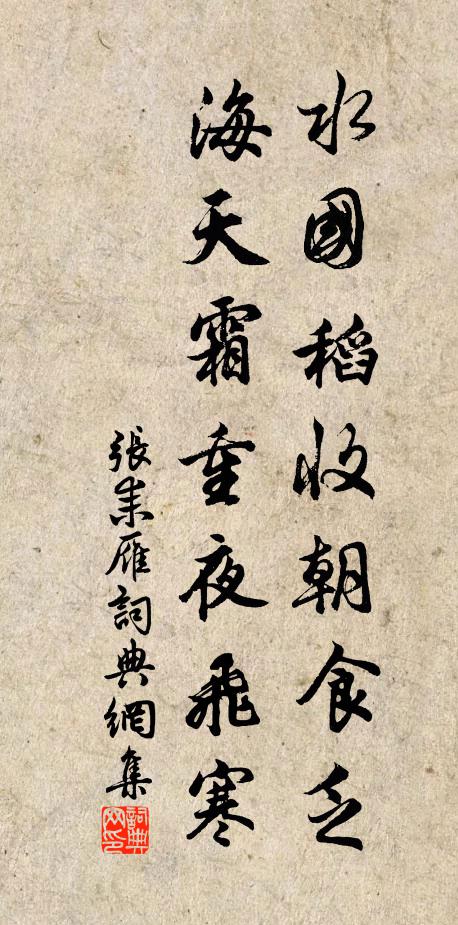 水國稻收朝食乏
海天霜重夜飛寒
張耒雁詞典網集
詞典网印